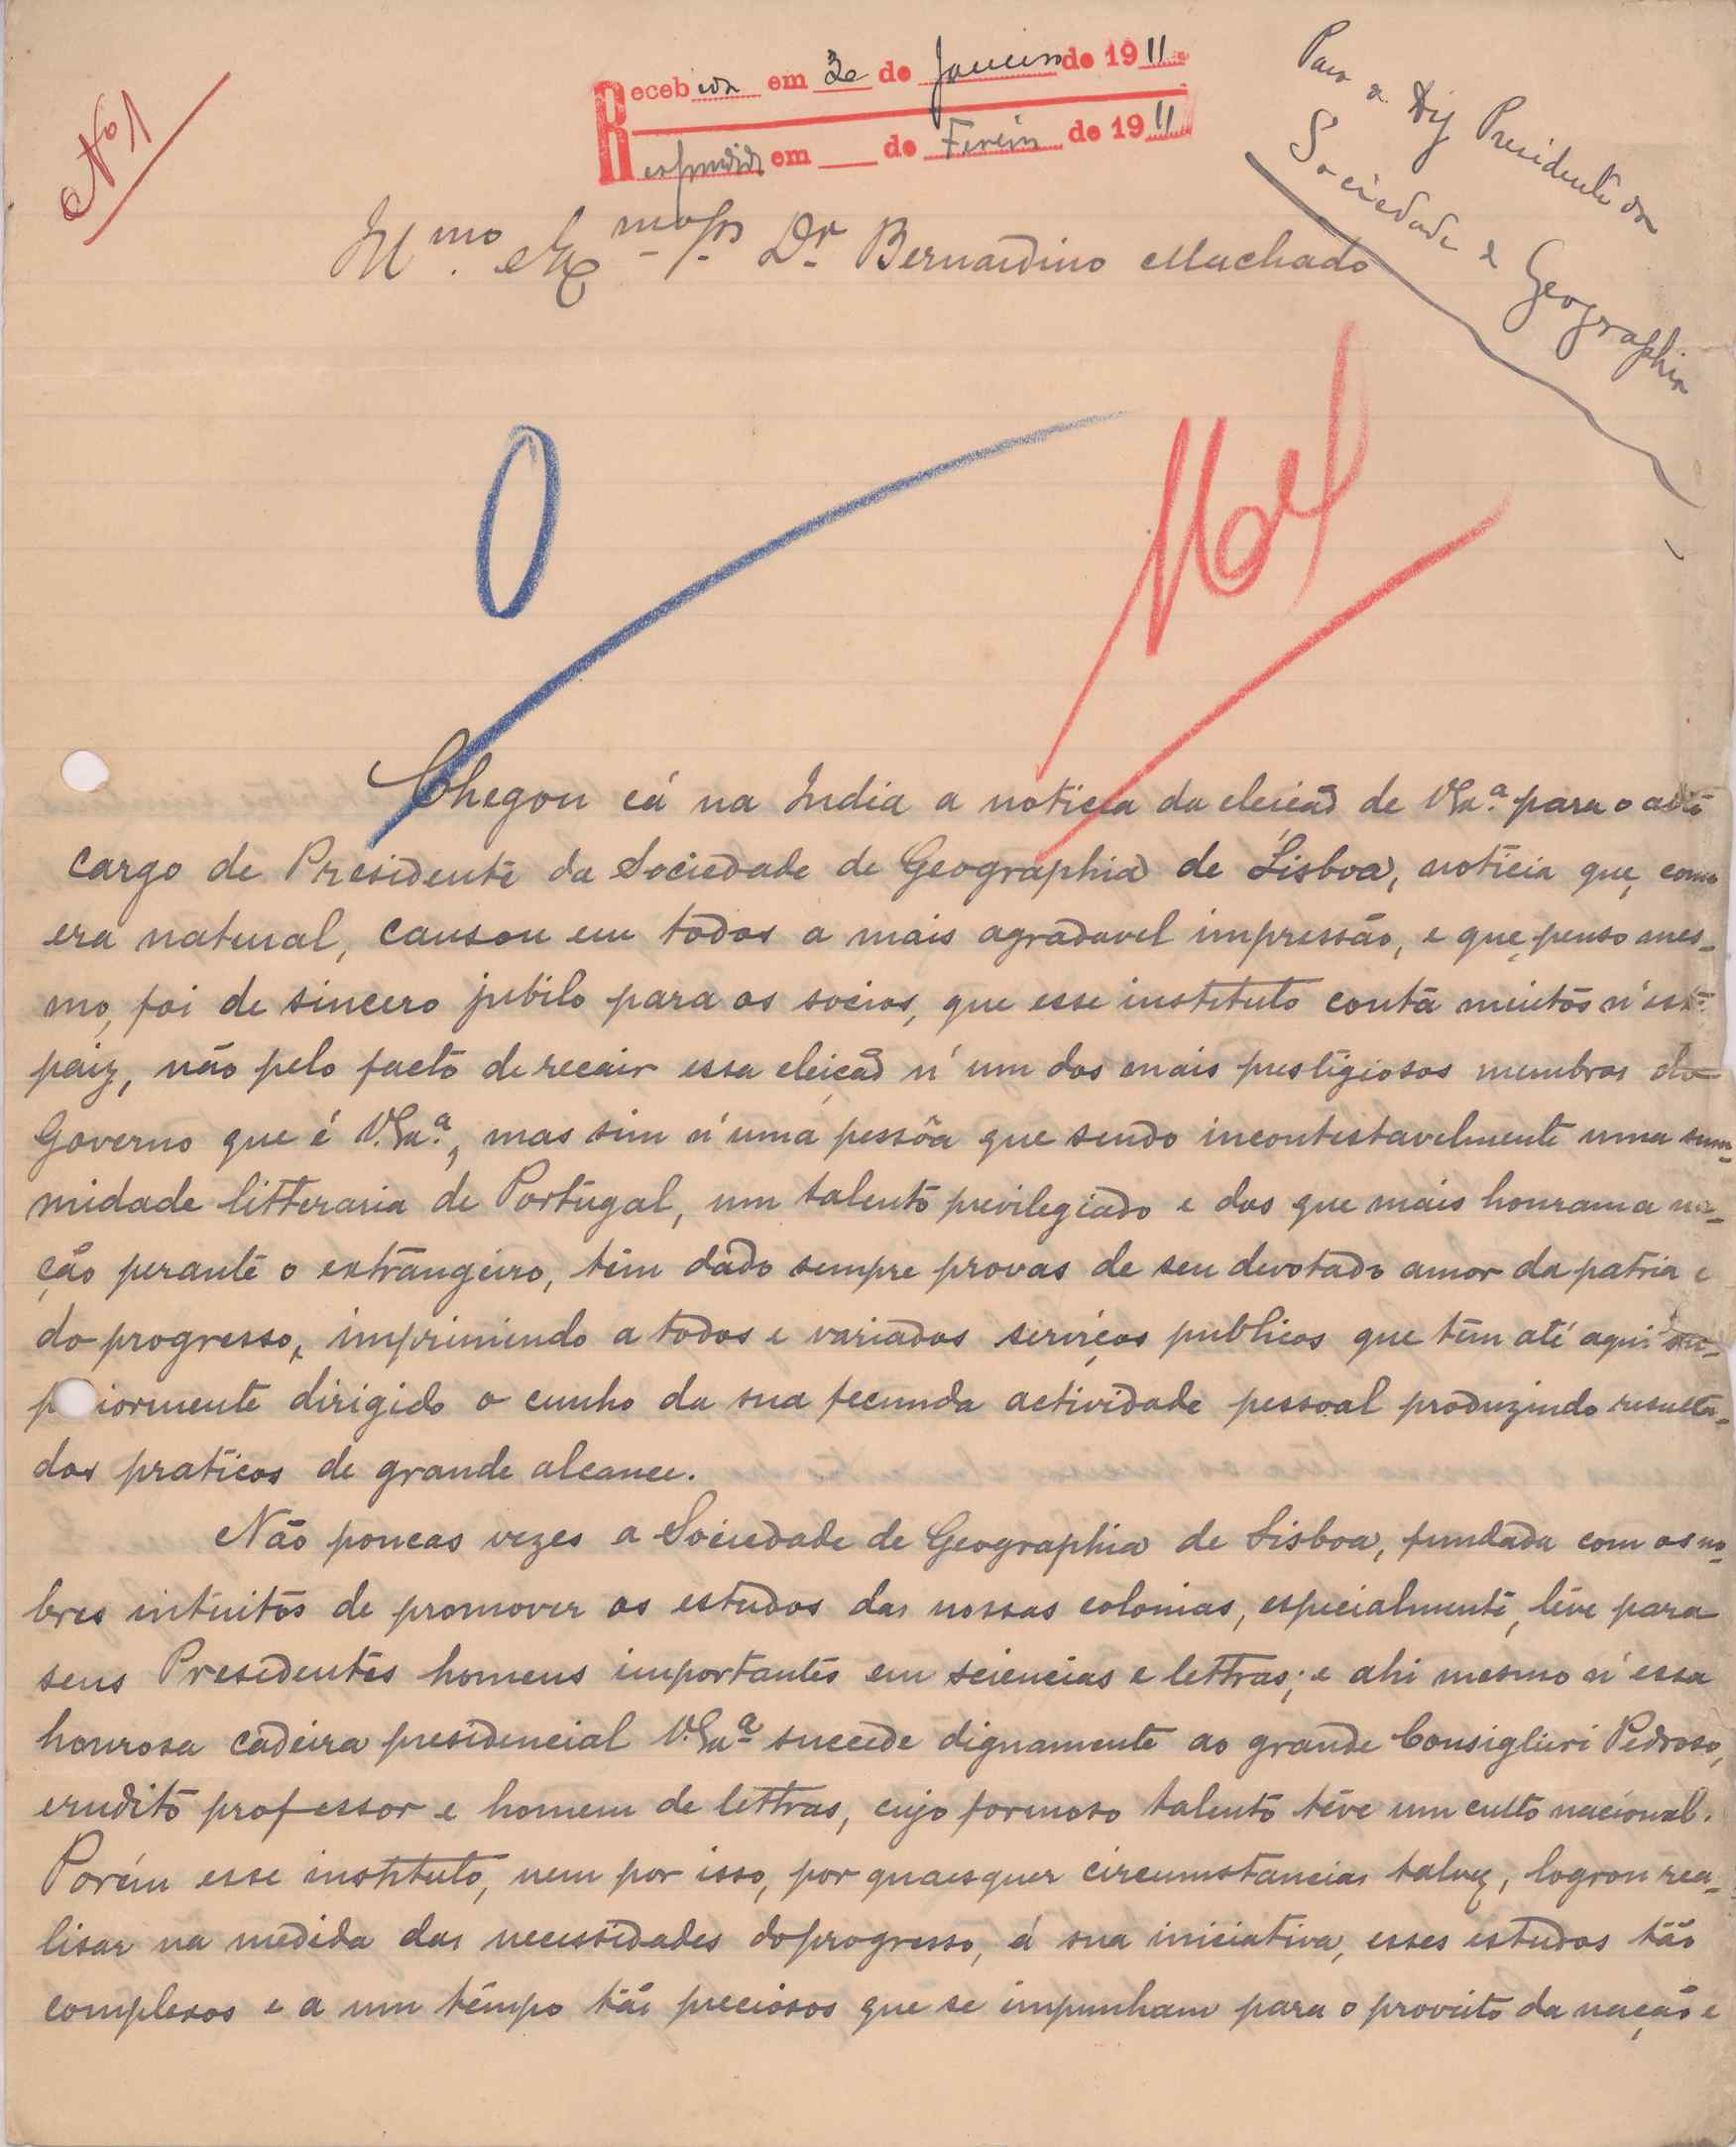 Nº 1
Recebida em 30 de Janeiro de 1911
Respondida em de Fever.º de 1911
Para o Presidente da
Sociedade de Geographia
Ill.mo Ex.mo Sr. Dr. Bernardino Machado
0
Chegou cá na India a noticia da eleição de V. Ex.ª para o alto
cargo de Presidente da Sociedade de Geographia de Lisboa, noticia que, como
era natural, causou em todos a mais agradavel impressão, e que, penso mes-
mo, foi de sincero jubilo para os socios, que esse instituto conta muitos n'este
paiz, não pelo facto de recair essa eleição n'um dos mais prestigiosos membros do
Governo que é V. Ex.ª, mas sim n'uma pessôa que sendo incontestavelmente uma sum-
midade litteraria de Portugal, um talento previlegiado e dos que mais honram a na-
ção perante o extrangeiro, têm dado sempre provas de seu devotado amor da patria e
do progresso, imprimindo a todos e variados serviços publicos que têm até aqui su-
p iormente dirigido o cunho da sua fecunda actividade pessoal produzindo resulta-
dos praticos de grande alcance.
Não poucas vezes a Sociedade de Geographia de Lisboa, fundada com os no-
bres intuitos de promover os estudos das nossas colonias, especialmente, têve para
seus Presidentes homens importantes em sciencias e lettras; e ahi mesmo n'essa
honrosa cadeira presidencial V. Ex.ª succede dignamente ao grande Consiglieri Pedroso,
erudito professor e homem de lettras, cujo formoso talento têve um culto nacional.
Porém esse instituto, nem por isso, por quaesquer circumstancias talvez, logrou rea-
lisar na medida das necessidades do progresso, á sua iniciativa, esses estudos tão
complexos e a um têmpo tão preciosos que se impunham para o proveito da nação e